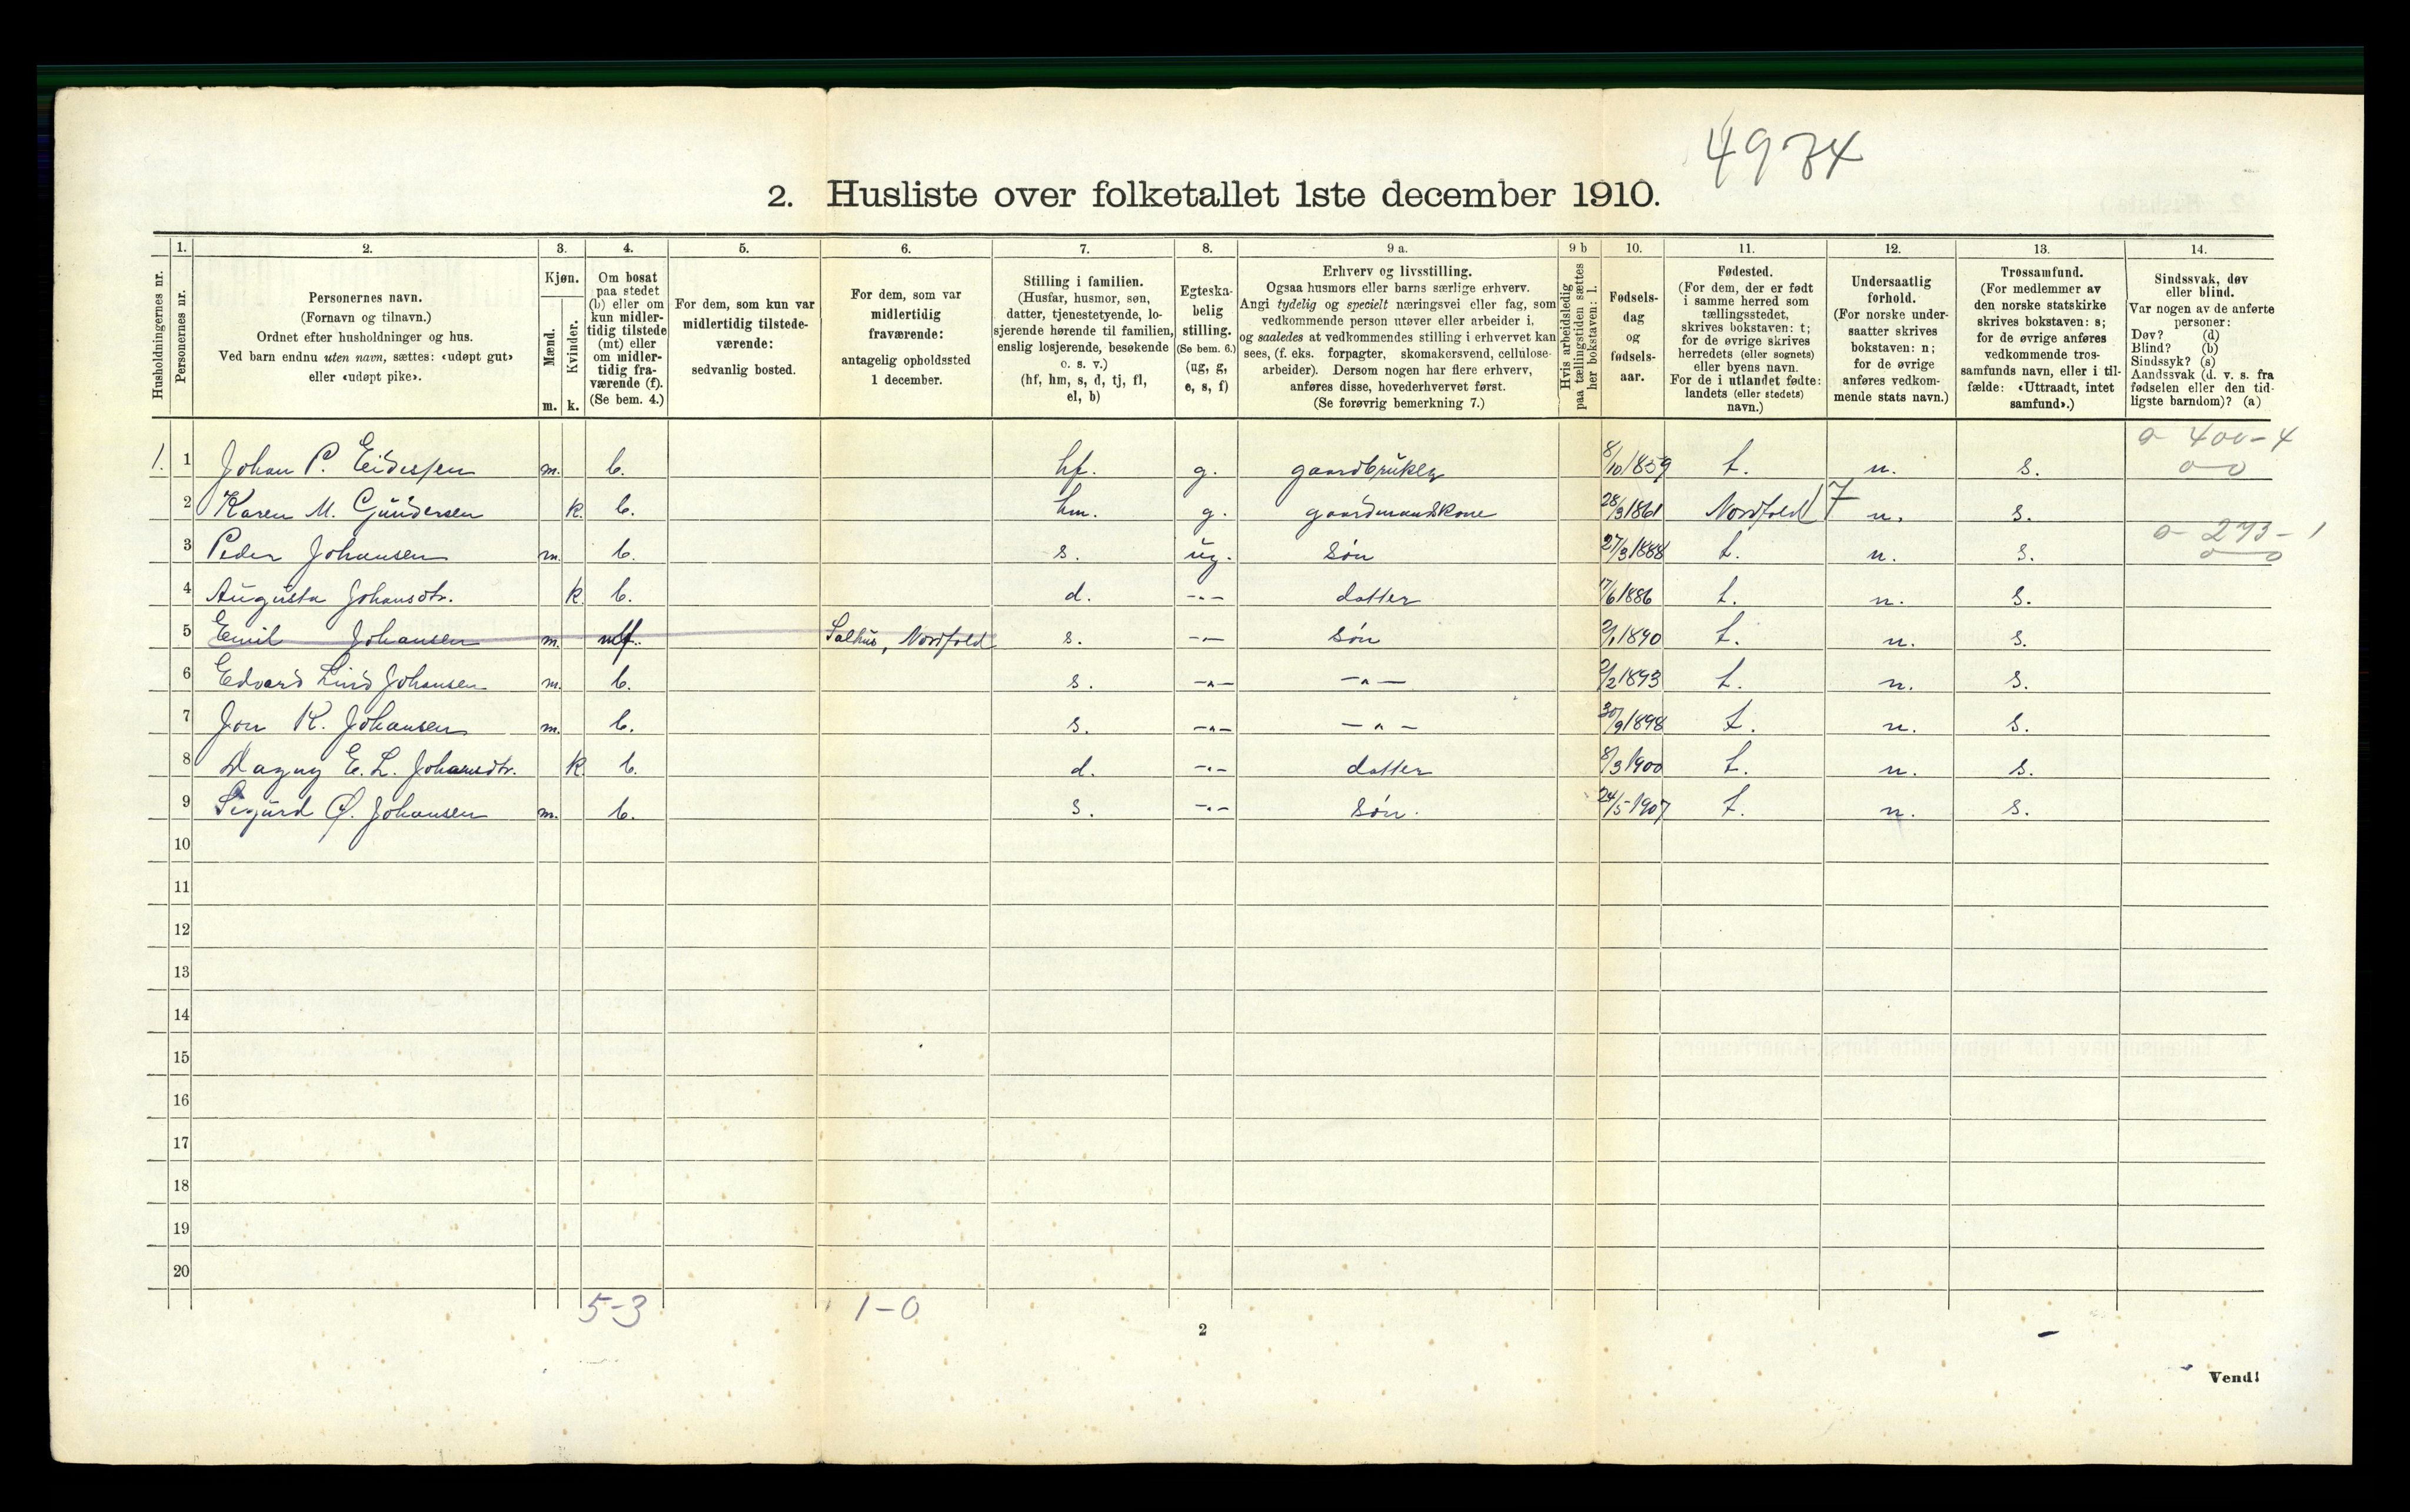 4934
2. Husliste over folketallet 1ste december 1910.
Husholdningernes nr.
1.
Personernes nr.
2.
Personernes navn.
(Fornavn og tilnavn.)
Ordnet efter husholdninger og hus.
Ved barn endnu uten navn, sættes: «udøpt gut»
eller «udøpt pike».
3.
Kjøn.
Mænd.
Kvinder.
m. k.
4.
Om bosat
paa stedet
(b) eller om
kun midler-
tidig tilstede
(mt) eller
om midler-
tidig fra-
værende (f).
(Se bem. 4.)
5.
For dem, som kun var
midlertidig tilstede-
værende:
sedvanlig bosted.
6.
For dem, som var
midlertidig
fraværende:
antagelig opholdssted
1 december.
7.
Stilling i familien.
(Husfar, husmor, søn,
datter, tjenestetyende, lo-
sjerende hørende til familien,
enslig losjerende, besøkende
o. s. v.)
(hf, hm, s, d, tj, fl,
el, b)
8.
Egteska-
belig
stilling.
(Se bem. 6.)
(ug, g,
e, s, f)
9 a.
Erhverv og livsstilling.
Ogsaa husmors eller barns særlige erhverv.
Angi tydelig og specielt næringsvei eller fag, som
vedkommende person utøver eller arbeider i,
og saaledes at vedkommendes stilling i erhvervet kan
sees, (f. eks. forpagter, skomakersvend, cellulose-
arbeider). Dersom nogen har flere erhverv,
anføres disse, hovederhvervet først.
(Se forøvrig bemerkning 7.)
9 b
Hvis arbeidsledig
paa tællingstiden sættes
her bokstaven: l.
10.
Fødsels-
dag
og
fødsels-
aar.
11.
Fødested.
(For dem, der er født
i samme herred som
tællingsstedet,
skrives bokstaven: t;
for de øvrige skrives
herredets (eller sognets)
eller byens navn.
For de i utlandet fødte:
landets (eller stedets)
navn.)
12.
Undersaatlig
forhold.
(For norske under-
saatter skrives
bokstaven: n;
for de øvrige
anføres vedkom-
mende stats navn.)
13.
Trossamfund.
(For medlemmer av
den norske statskirke
skrives bokstaven: s;
for de øvrige anføres
vedkommende tros-
samfunds navn, eller i til-
fælde: «Uttraadt, intet
samfund».)
14.
Sindssvak, døv
eller blind.
Var nogen av de anførte
personer:
Døv? (d)
Blind? (b)
Sindssyk? (s)
Aandssvak (d. v. s. fra
fødselen eller den tid-
ligste barndom)? (a)
1. 1 Johan P. Eidessen m. b. hf. g. gaardbruker 8/10 1859 t. n. s. 0 - 400 - 4
0 0
2 Karen M. Gundersen k. b. hm. g. gaardmandskone 28/3 1861 Nordfold 7 n. s.
3 Peder Johansen m. b. s. ug. søn 27/3 1888 t. n. s. 0 - 273 - 1
0 0
4 Augusta Johansdtr. k. b. d. -"- datter 17/6 1886 t. n. s.
5 Emil Johansen m. f. Salhus, Nordfold s. -"- søn 2/1 1890 t. n. s.
6 Edvard Lind Johansen m. b. s. -"- -"- 2/2 1893 t. n. s.
7 Jon K. Johansen m. b. s. -"- -"- 30/9 1898 t. n. s.
8 Dagny E. L. Johansdtr. k. b. d. -"- datter 8/3 1900 t. n. s.
9 Sigurd Ø. Johansen m. b. s. -"- søn. 24/5 1907 t. n. s.
10
11
12
13
14
15
16
17
18
19
20
5-3 1-0
2
Vend!